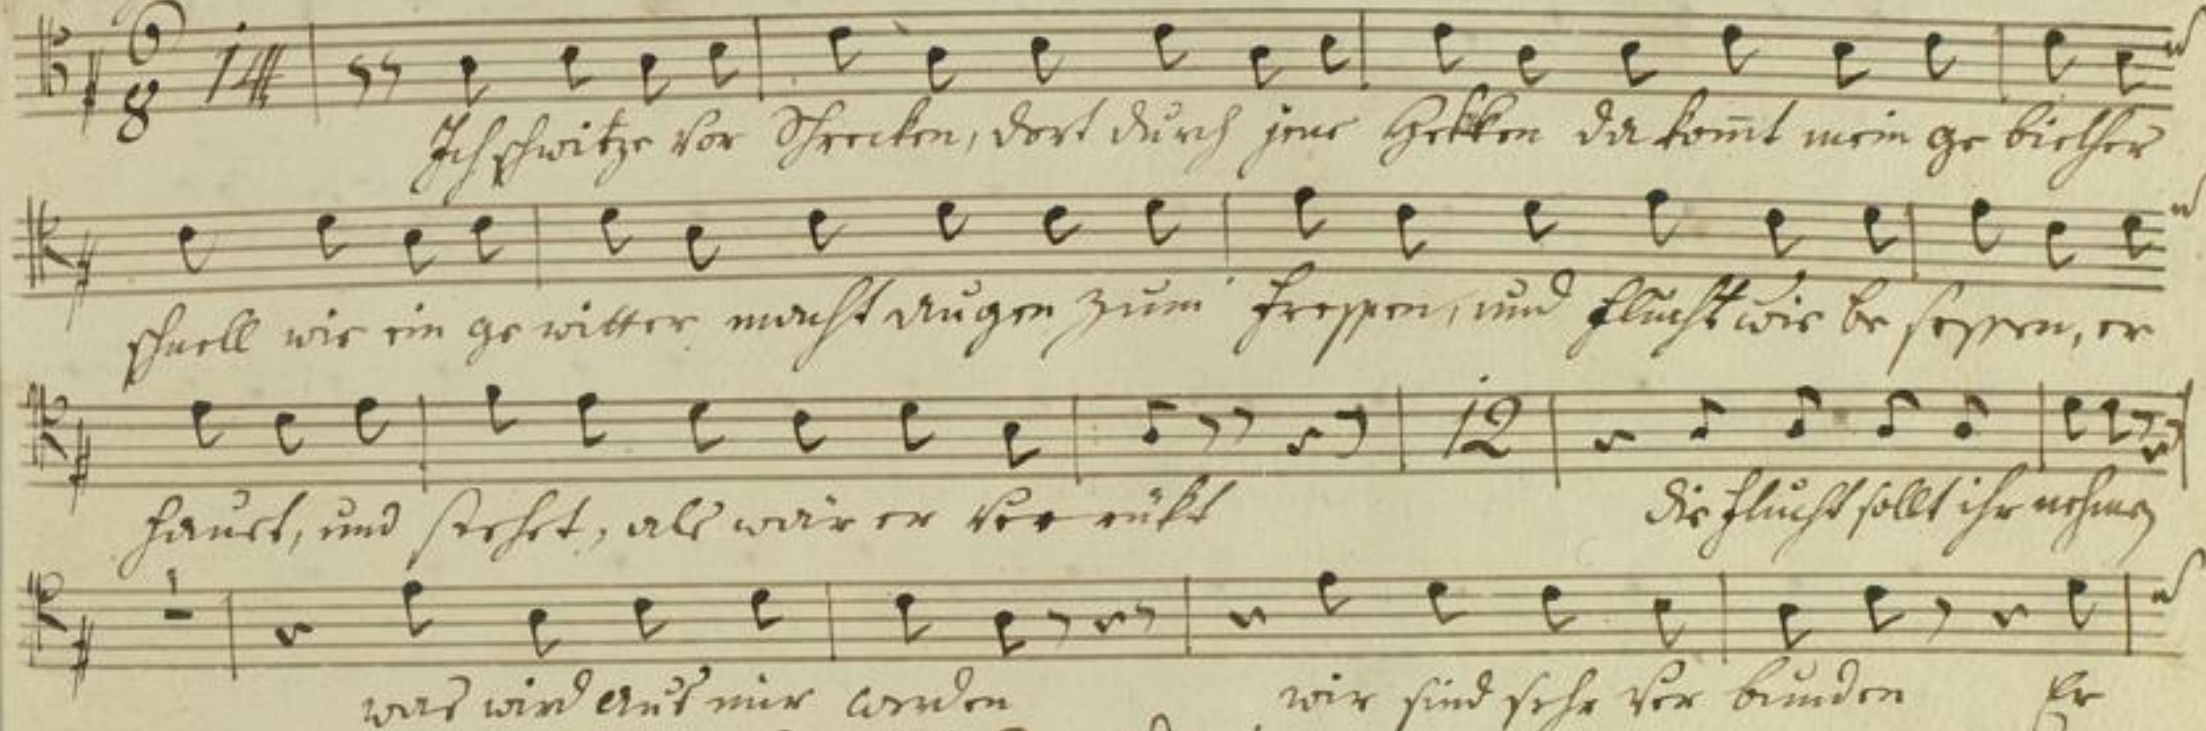 6 8 14
Ich schwitze vor Schrecken, dort durch jene Hekken da kom̄t mein ge biether
schnell wie ein ge witter macht augen zum fressen, und flucht wie be sessen, er
12
haust, und stehet, als wär er ver rükt die flucht sollt ihr nehmen
1
was wird aus mir werden wir sind sehr ver bunden Er